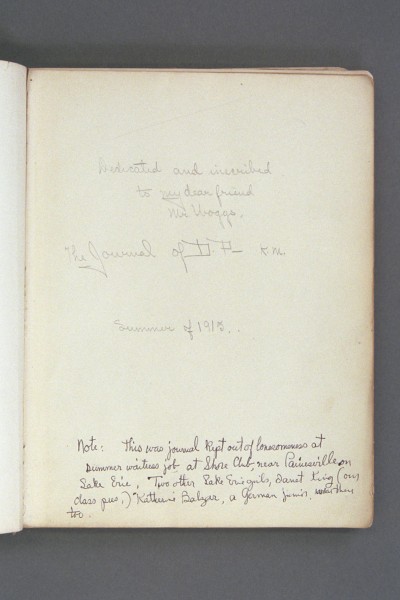 Dedicated and inscribed
to my dear friend
Mr Woggs.
The Journal of D.P. K.M.
Summer of 191
Note: This was journal kept out of lonesomeness at
summer waitress job at Shore Club, near Painesville on
Lake Erie, Two other Lake Erie girls, Janet King (our
class pres.) Katherine Balzer, a German junior, were there
too.